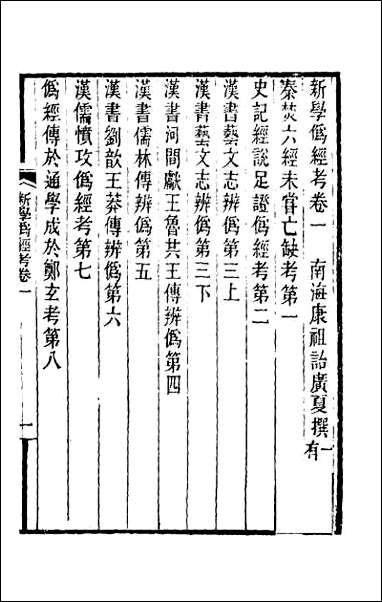 新學僞經考卷一　南海康祖詒廣夏撰　一有
秦焚六經未嘗亡缺考第一
史記經說足證僞經考第二
漢書藝文志辨僞第三上
漢書藝文志辨僞第三下
漢書河間獻王魯共王傳辨僞第四
漢書儒林傳辨僞第五
漢書劉歆王莽傳辨僞第六
漢儒憤攻僞經考第七
僞經傳於通學成於鄭玄考第八
新學僞經考卷一　一